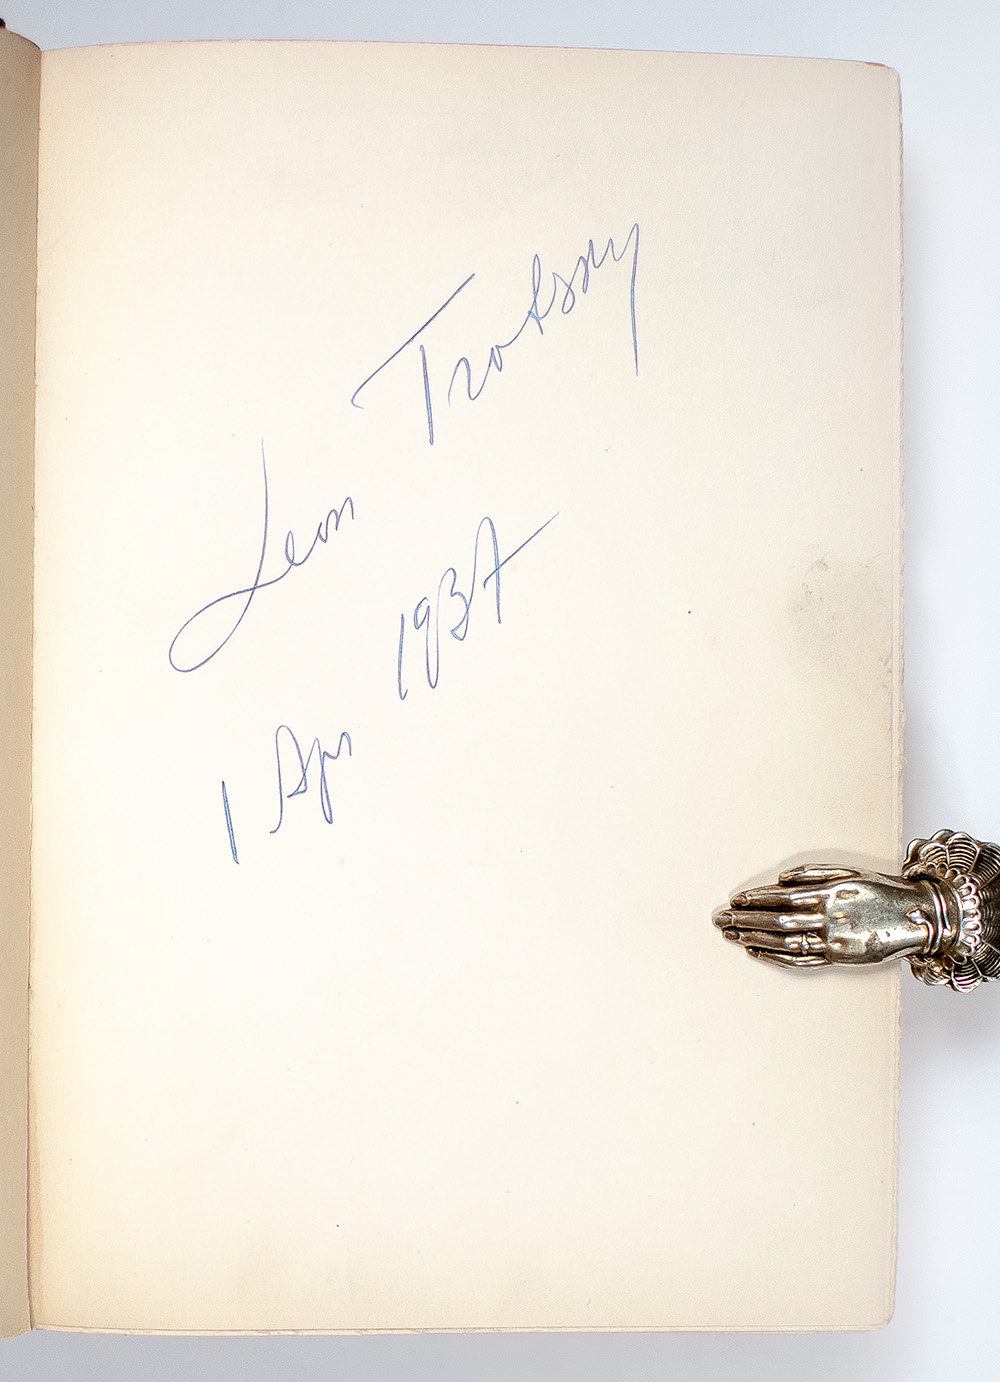 Leon Trotsky
1 Apr 1937